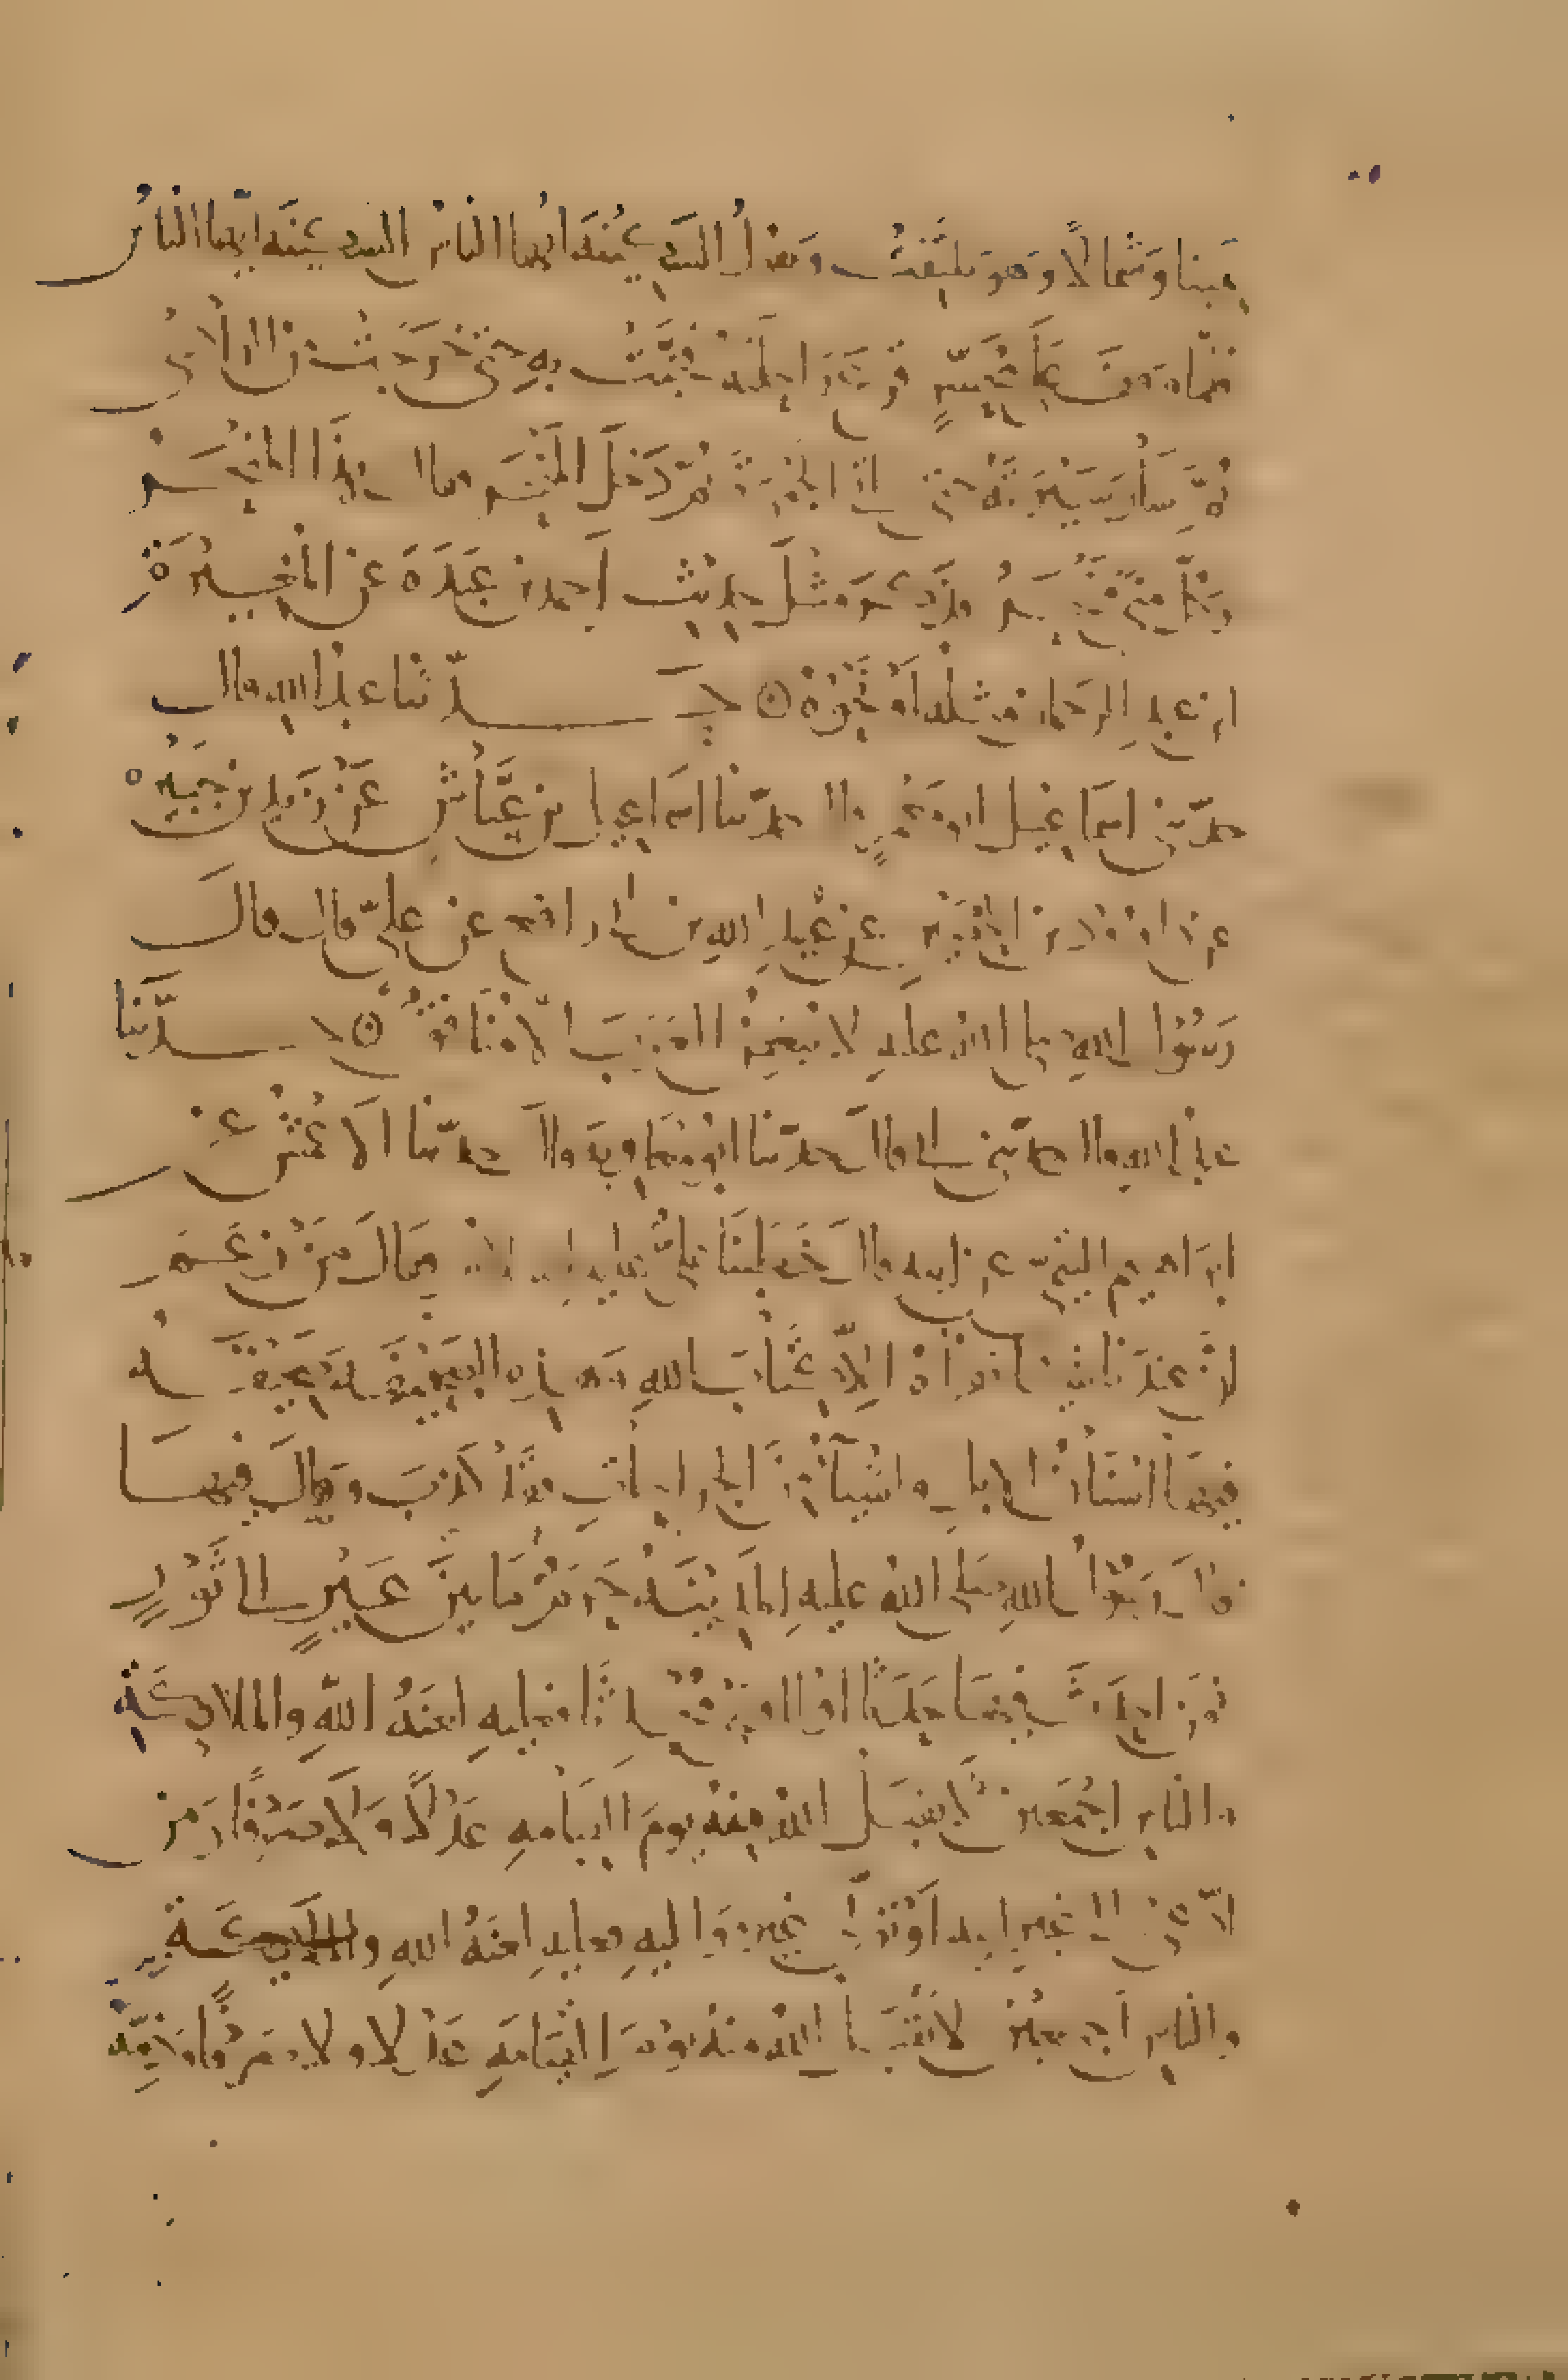 يمينا وشمالا وهو يلتفت ويقول السكينة ايها الناس السكينة ايها الناس
ثم سار سيرته حتى اتى الجمرة ثم دخل المنحر فقال هذا المنحر
وكل منى منحر فذكر نحو مثل حديث احمد بن عبدة عن المغيرة
ابن عبد الرحمان مثله او نحوه حدثنا عبد الله قال
حدثني اسماعيل ابو معمر قال حدثنا اسماعيل بن عياش عن زيد بن جبيرة
عن داوود بن الحصين عن عبيد الله بن ابي رافع عن علي قال قال
رسول الله صلى الله عليه لا يبغض العرب الا منافق حدثنا
عبد الله قال حدثني ابي قال حدثنا ابو معاوية قال حدثنا الاعمش عن
ابراهيم التيمي عن ابيه قال خطبنا علي عليه السلم فقال من زعم
ان عندنا شيئا نقراه الا كتاب الله وهذه الصحيفة صحيفة
فيها اسنان الابل واشياء من الجراحات فقد كذب وقال فيها
قال رسول الله صلى الله عليه المدينة حرم ما بين عير الى ثور
فمن احدث فيها حدثا او اوى محدثا فعليه لعنة الله والملايكة
والناس اجمعين لا يقبل الله منه يوم القيامة عدلا ولا صرفا ومن
ادعى الى غير ابيه او تولى غير مواليه فعليه لعنة الله والملايكة
والناس اجمعين لا يقبل الله منه يوم القيامة عدلا ولا صرفا وذمة